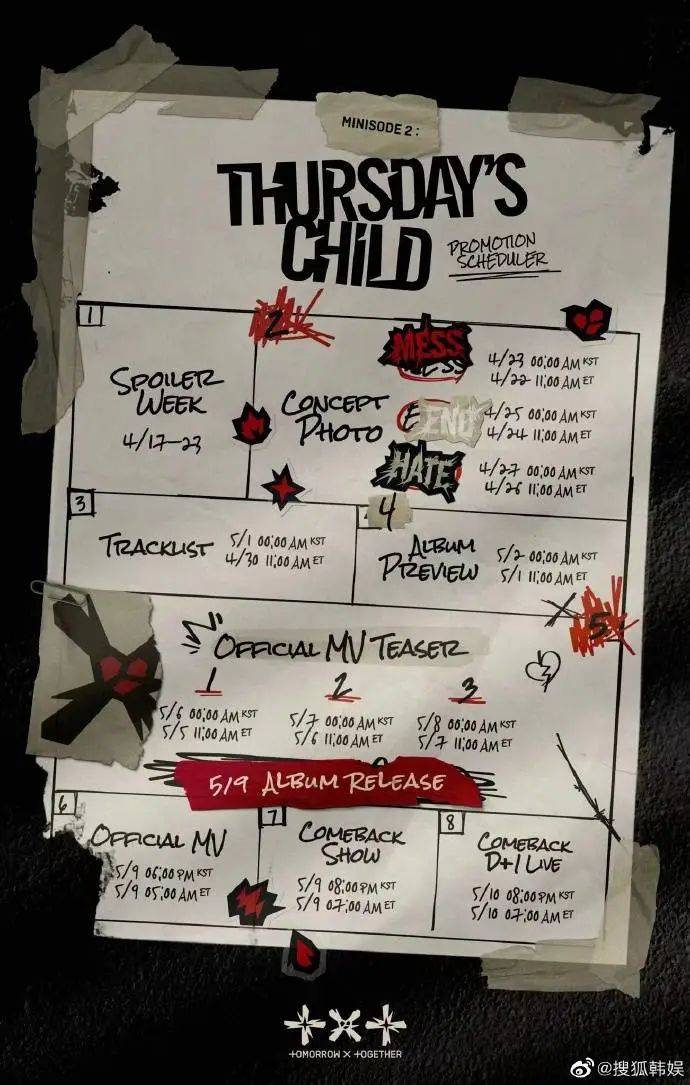 MINISODE 2:
THURSDAY'S
CHILD
PROMOTION
SCHEDULER
1
SPOILER
WEEK
4/17-23
2
CONCEPT
PHOTO
MESS
4/23 00:00 AM KST
4/22 11:00 AM ET
END
4/25 00:00 AM KST
4/24 11:00 AM ET
HATE
4/27 00:00 AM KST
4/26 11:00 AM ET
3
TRACKLIST
5/1 00:00 AM KST
4/30 11:00 AM ET
4
ALBUM
PREVIEW
5/2 00:00 AM KST
5/1 11:00 AM ET
5
OFFICIAL MV TEASER
1
5/6 00:00 AM KST
5/5 11:00 AM ET
2
5/7 00:00 AM KST
5/6 11:00 AM ET
3
5/8 00:00 AM KST
5/7 11:00 AM ET
5/9 ALBUM RELEASE
6
OFFICIAL MV
5/9 06:00 PM KST
5/9 05:00 AM ET
7
COMEBACK
SHOW
5/9 08:00 PM KST
5/9 07:00 AM ET
8
COMEBACK
D+1 LIVE
5/10 08:00 PM KST
5/10 07:00 AM ET
TOMORROW X TOGETHER
@搜狐韩娱